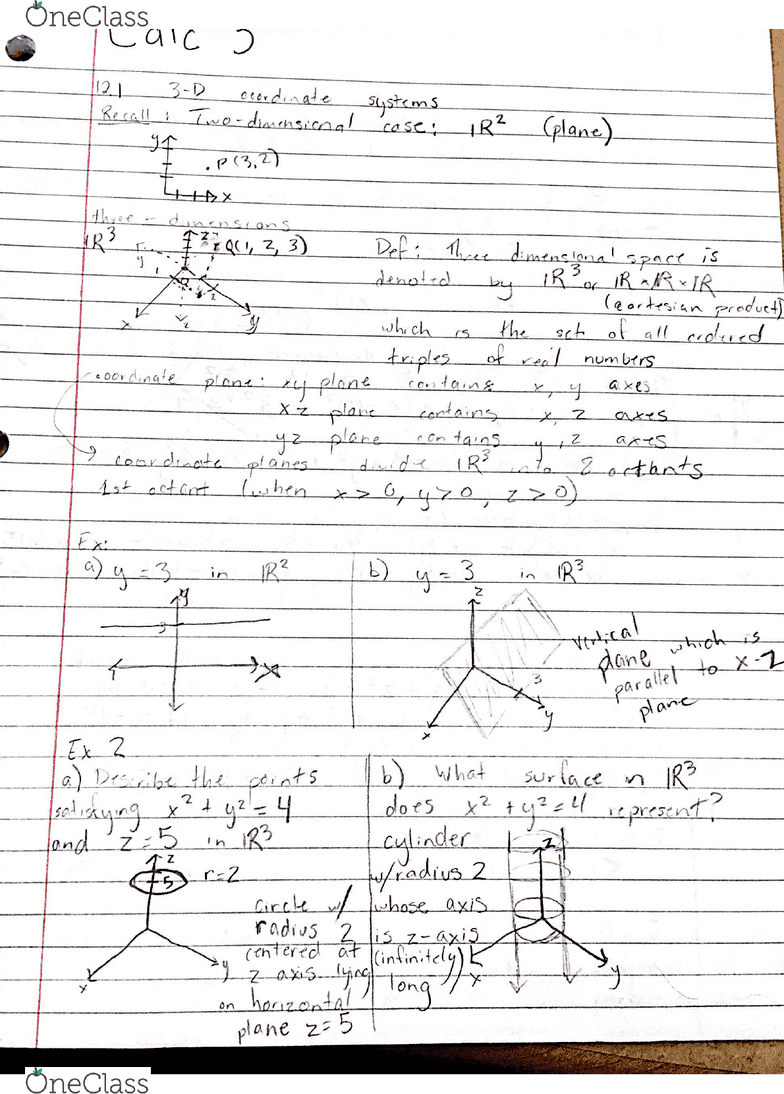 OneClass
Calc 3
12.1 3-D coordinate systems
Recall: Two-dimensional case: ℝ² (plane)
y
.P(3,2)
x
three-dimensions
ℝ³
z
Q(1, 2, 3)
y
1
2
x
y
Def: Three dimensional space is
denoted by ℝ³ or ℝ×ℝ×ℝ
(cartesian product)
which is the set of all ordered
triples of real numbers
coordinate plane: xy plane contains x, y axes
xz plane contains x, z axes
yz plane contains y, z axes
coordinate planes divide ℝ³ into 8 octants
1st octant (when x>0, y>0, z>0)
Ex:
a) y=3 in ℝ²
y
3
x
b) y=3 in ℝ³
z
3
y
x
vertical
plane which is
parallel to x-z
plane
Ex 2
a) Describe the points
satisfying x²+y²=4
and z=5 in ℝ³
z
5
r=2
x
y
circle w/
radius 2
centered at
z axis lying
on horizontal
plane z=5
b) What surface in ℝ³
does x²+y²=4 represent?
cylinder
w/radius 2
whose axis
is z-axis
(infinitely
long)
z
x
y
OneClass